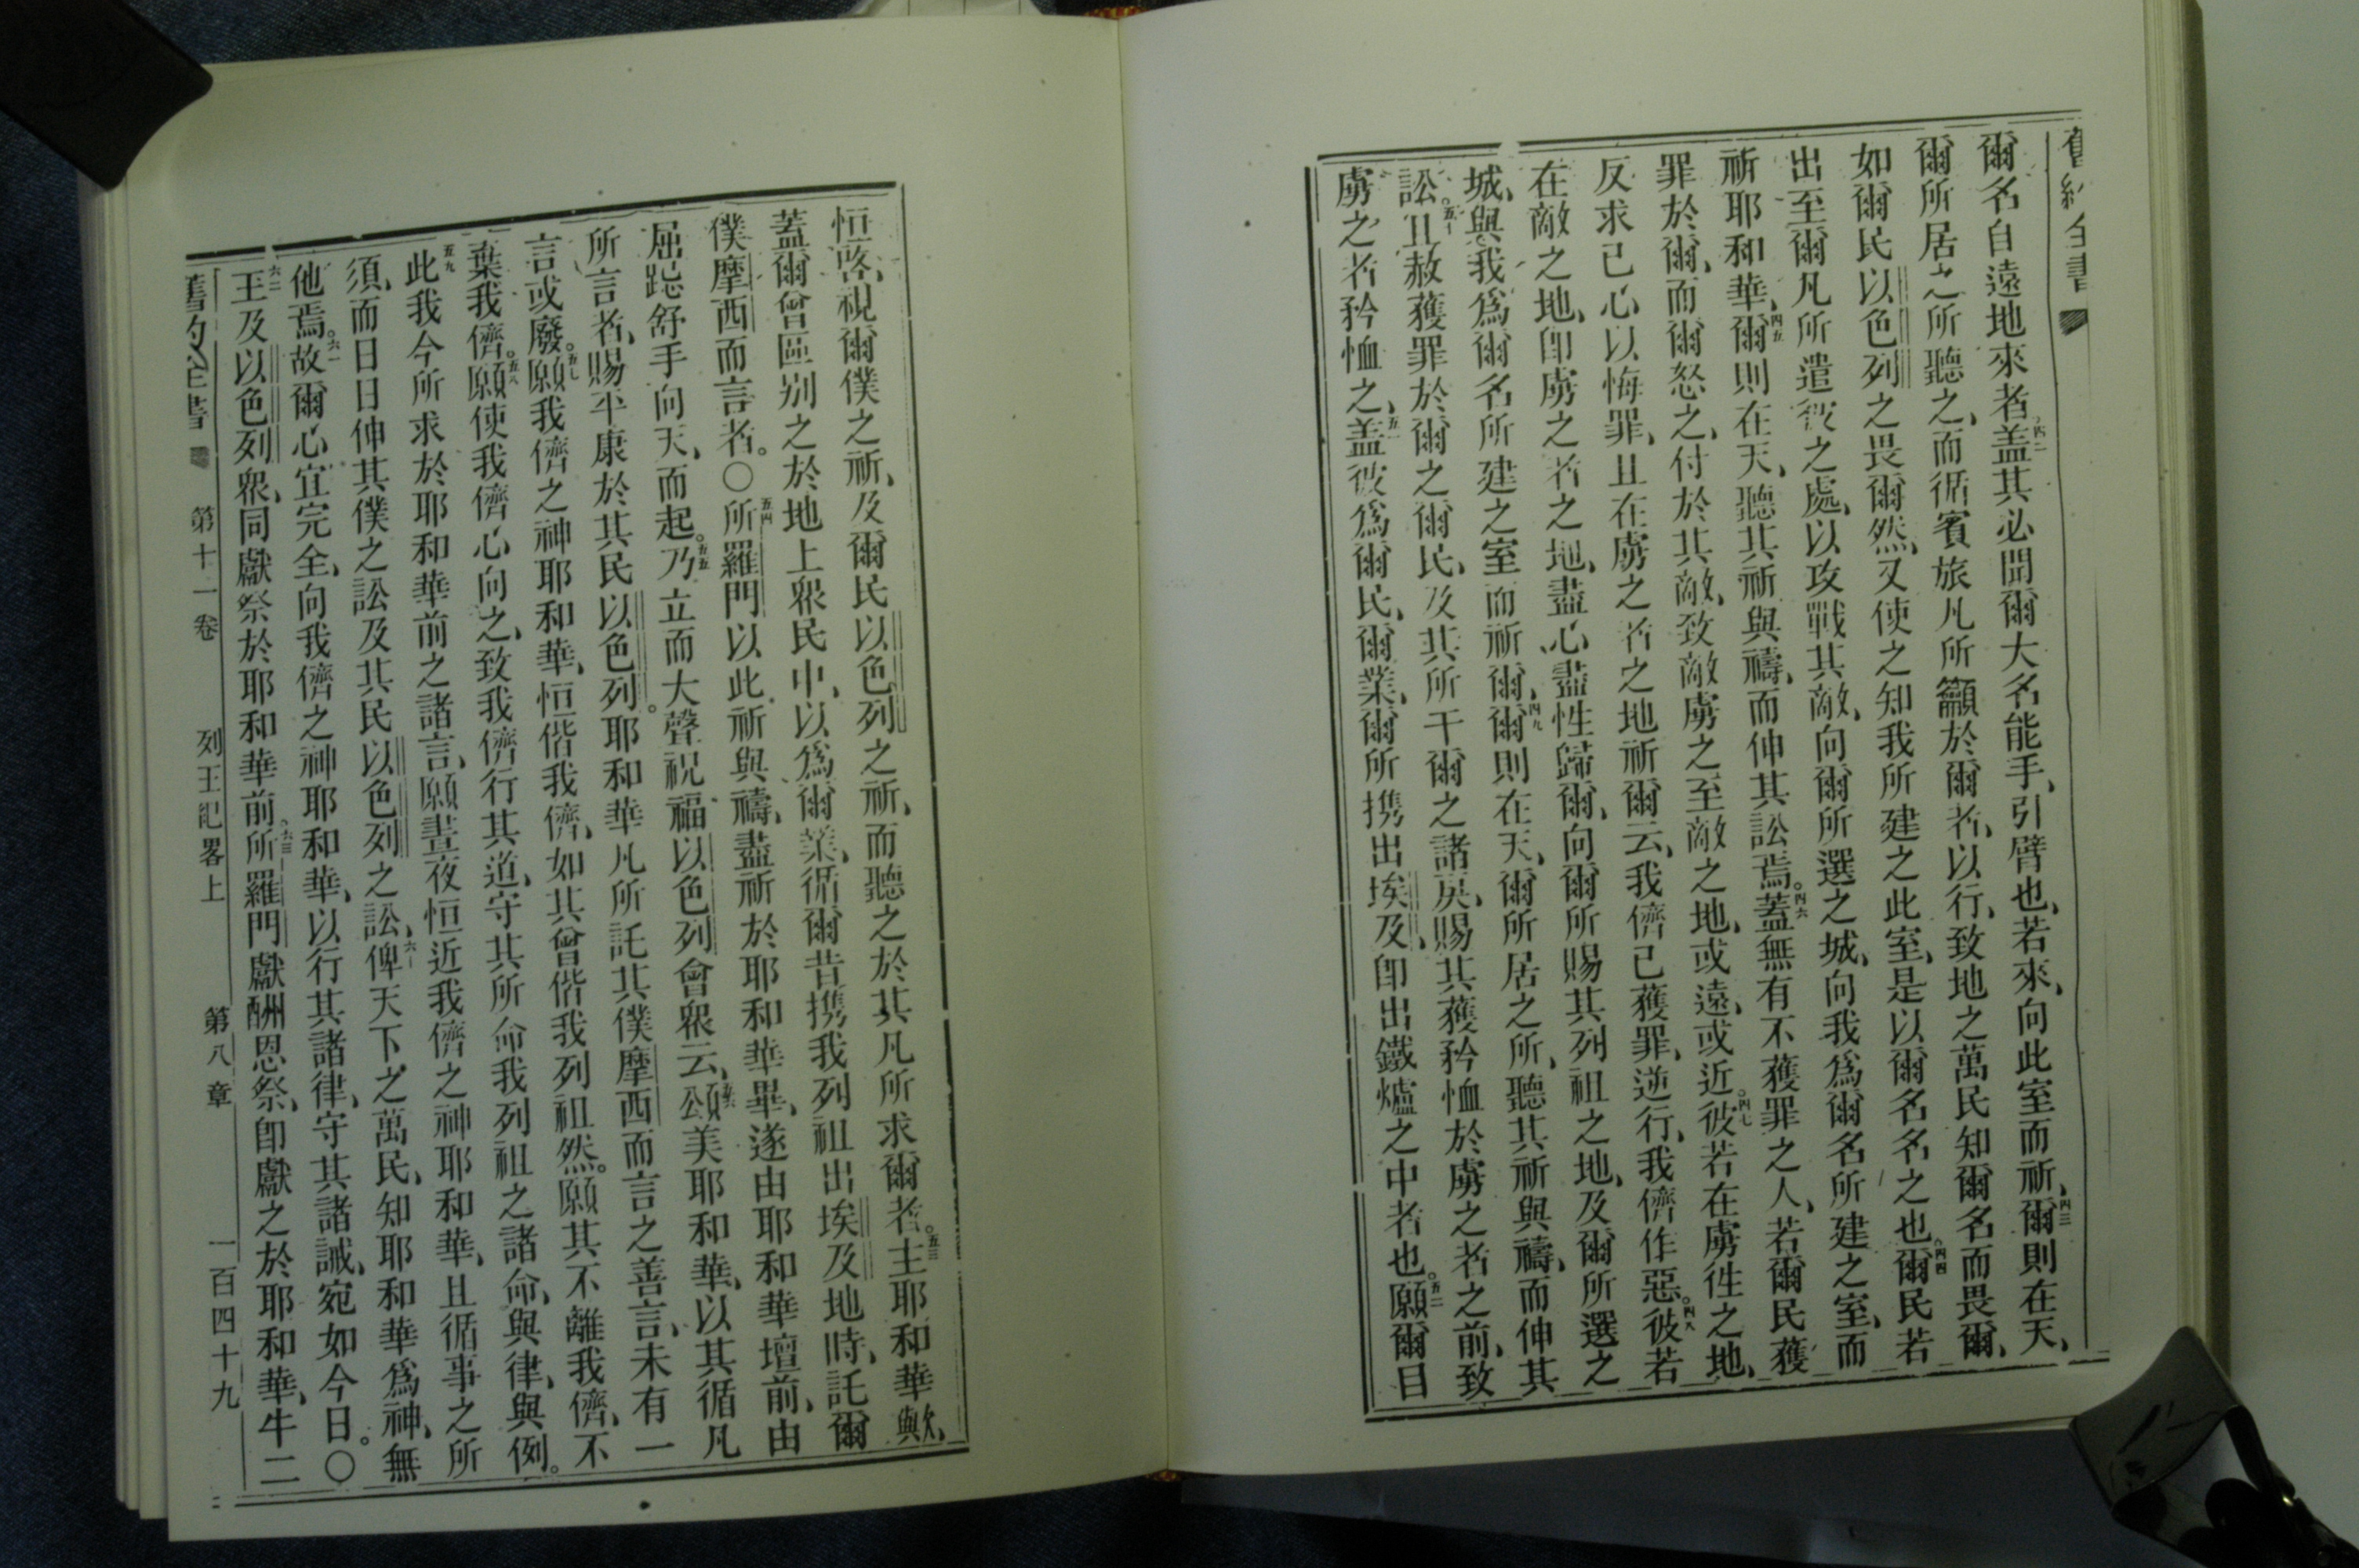 舊約全書
爾名自遠地來者、四二盖其必聞爾大名能手、引臂也、若來、向此室而祈、四三爾則在天、
爾所居之所聽之、而循賓旅凡所籲於爾者、以行、致地之萬民知爾名而畏爾、
如爾民以色列之畏爾然、又使之知我所建之此室、是以爾名名之也、四四爾民若
出至爾凡所遣彼之處、以攻戰其敵、向爾所選之城、向我爲爾名所建之室、而
祈耶和華、四五爾則在天、聽其祈與禱、而伸其訟焉。四六蓋無有不獲罪之人、若爾民獲
罪於爾、而爾怒之、付於其敵、致敵虜之至敵之地、或遠、或近。四七彼若在虜徃之地、
反求已心以悔罪、且在虜之者之地祈爾云、我儕已獲罪、逆行、我儕作惡。四八彼若
在敵之地、卽虜之者之地、盡心盡性歸爾、向爾所賜其列祖之地、及爾所選之
城、與我爲爾名所建之室而祈爾、四九爾則在天、爾所居之所、聽其祈與禱、而伸其
訟。五十且赦獲罪於爾之爾民、及其所干爾之諸戾、賜其獲矜恤於虜之者之前、致
虜之者矜恤之、五一盖彼爲爾民、爾業、爾所携出埃及、卽出鐵爐之中者也。五二願爾目
恒啓、視爾僕之祈、及爾民以色列之祈、而聽之於其凡所求爾者。五三主耶和華歟、
蓋爾曾區别之於地上衆民中、以爲爾業、循爾昔携我列祖出埃及地時、託爾
僕摩西而言者。〇五四所羅門以此祈與禱、盡祈於耶和華畢、遂由耶和華壇前、由
屈跽舒手向天、而起。五五乃立而大聲祝福以色列會衆云、五六頌美耶和華、以其循凡
所言者、賜平康於其民以色列。耶和華凡所託其僕摩西而言之善言、未有一
言或廢。五七願我儕之神耶和華、恒偕我儕、如其曾偕我列祖然。願其不離我儕、不
葉我儕。五八願使我儕心向之、致我儕行其道、守其所命我列祖之諸命、與律、與例。
五九此我今所求於耶和華前之諸言、願晝夜恒近我儕之神耶和華、且循事之所
須、而日日伸其僕之訟及其民以色列之訟、六十俾天下之萬民、知耶和華爲神、無
他焉。六一故爾心宜完全、向我儕之神耶和華、以行其諸律、守其諸誡、宛如今日。〇
六二王及以色列衆、同獻祭於耶和華前。六三所羅門獻酬恩祭、卽獻之於耶和華、牛二
舊約全書 第十一卷 列王紀畧上 第八章 一百四十九